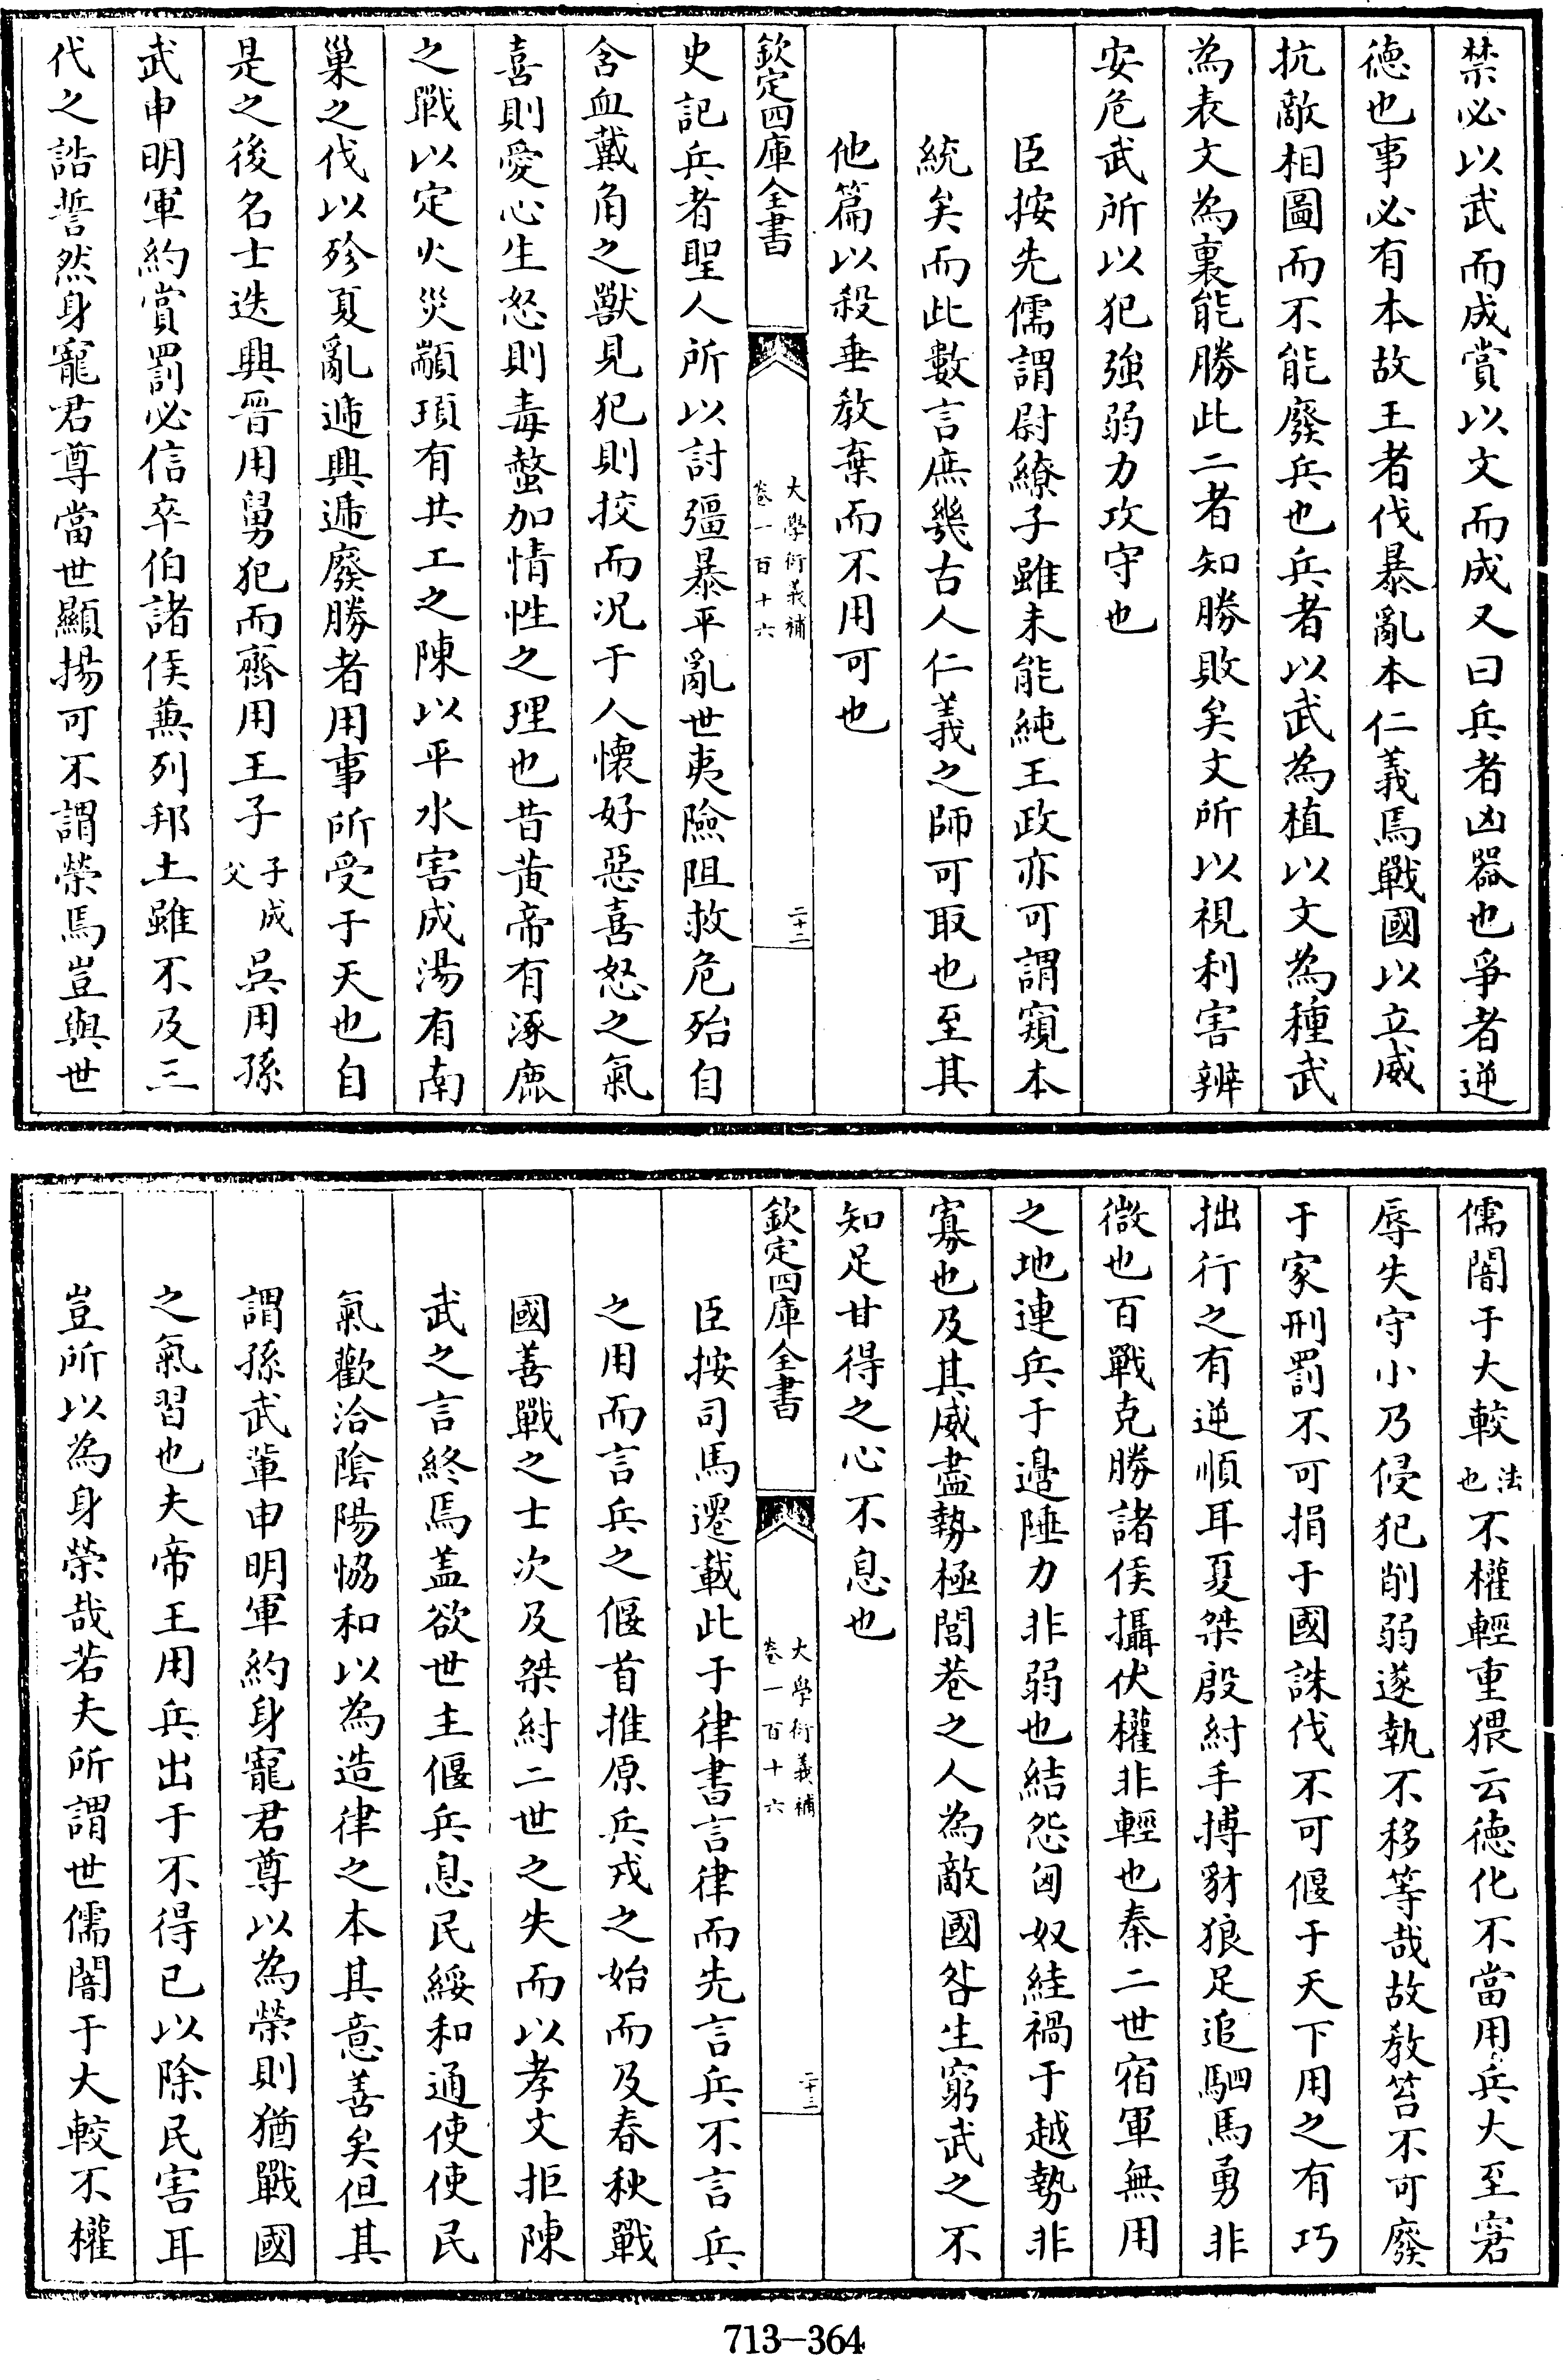 禁必以武而成賞以文而成又曰兵者凶器也爭者逆
德也事必有本故王者伐暴亂本仁義焉戰國以立威
抗敵相圖而不能廢兵也兵者以武為植以文為種武
為表文為裏能勝此二者知勝敗矣文所以視利害辨
安危武所以犯強弱力攻守也
臣按先儒謂尉繚子雖未能純王政亦可謂窺本
統矣而此數言庶幾古人仁義之師可取也至其
他篇以殺垂教棄而不用可也
欽定四庫全書
大學衍義補
卷一百十六
二十二
史記兵者聖人所以討彊暴平亂世夷險阻救危殆自
含血戴角之獸見犯則挍而況于人懷好惡喜怒之氣
喜則愛心生怒則毒螫加情性之理也昔黃帝有涿鹿
之戰以定火災顓頊有共工之陳以平水害成湯有南
巢之伐以殄夏亂遞興遞廢勝者用事所受于天也自
是之後名士迭興晉用舅犯而齊用王子子成父吳用孫
武申明軍約賞罰必信卒伯諸侯兼列邦土雖不及三
代之誥誓然身寵君尊當世顯揚可不謂榮焉豈與世
儒闇于大較法也不權輕重猥云德化不當用兵大至窘
辱失守小乃侵犯削弱遂執不移等哉故教笞不可廢
于家刑罰不可捐于國誅伐不可偃于天下用之有巧
拙行之有逆順耳夏桀殷紂手搏豺狼足追駟馬勇非
微也百戰克勝諸侯攝伏權非輕也秦二世宿軍無用
之地連兵于邊陲力非弱也結怨匈奴絓禍于越勢非
寡也及其威盡勢極閭巷之人為敵國咎生窮武之不
知足甘得之心不息也
欽定四庫全書
大學衍義補
卷一百十六
二十三
臣按司馬遷載此于律書言律而先言兵不言兵
之用而言兵之偃首推原兵戎之始而及春秋戰
國善戰之士次及桀紂二世之失而以孝文拒陳
武之言終焉蓋欲世主偃兵息民綏和通使使民
氣歡洽陰陽恊和以為造律之本其意善矣但其
謂孫武輩申明軍約身寵君尊以為榮則猶戰國
之氣習也夫帝王用兵出于不得已以除民害耳
豈所以為身榮哉若夫所謂世儒闇于大較不權
713-364